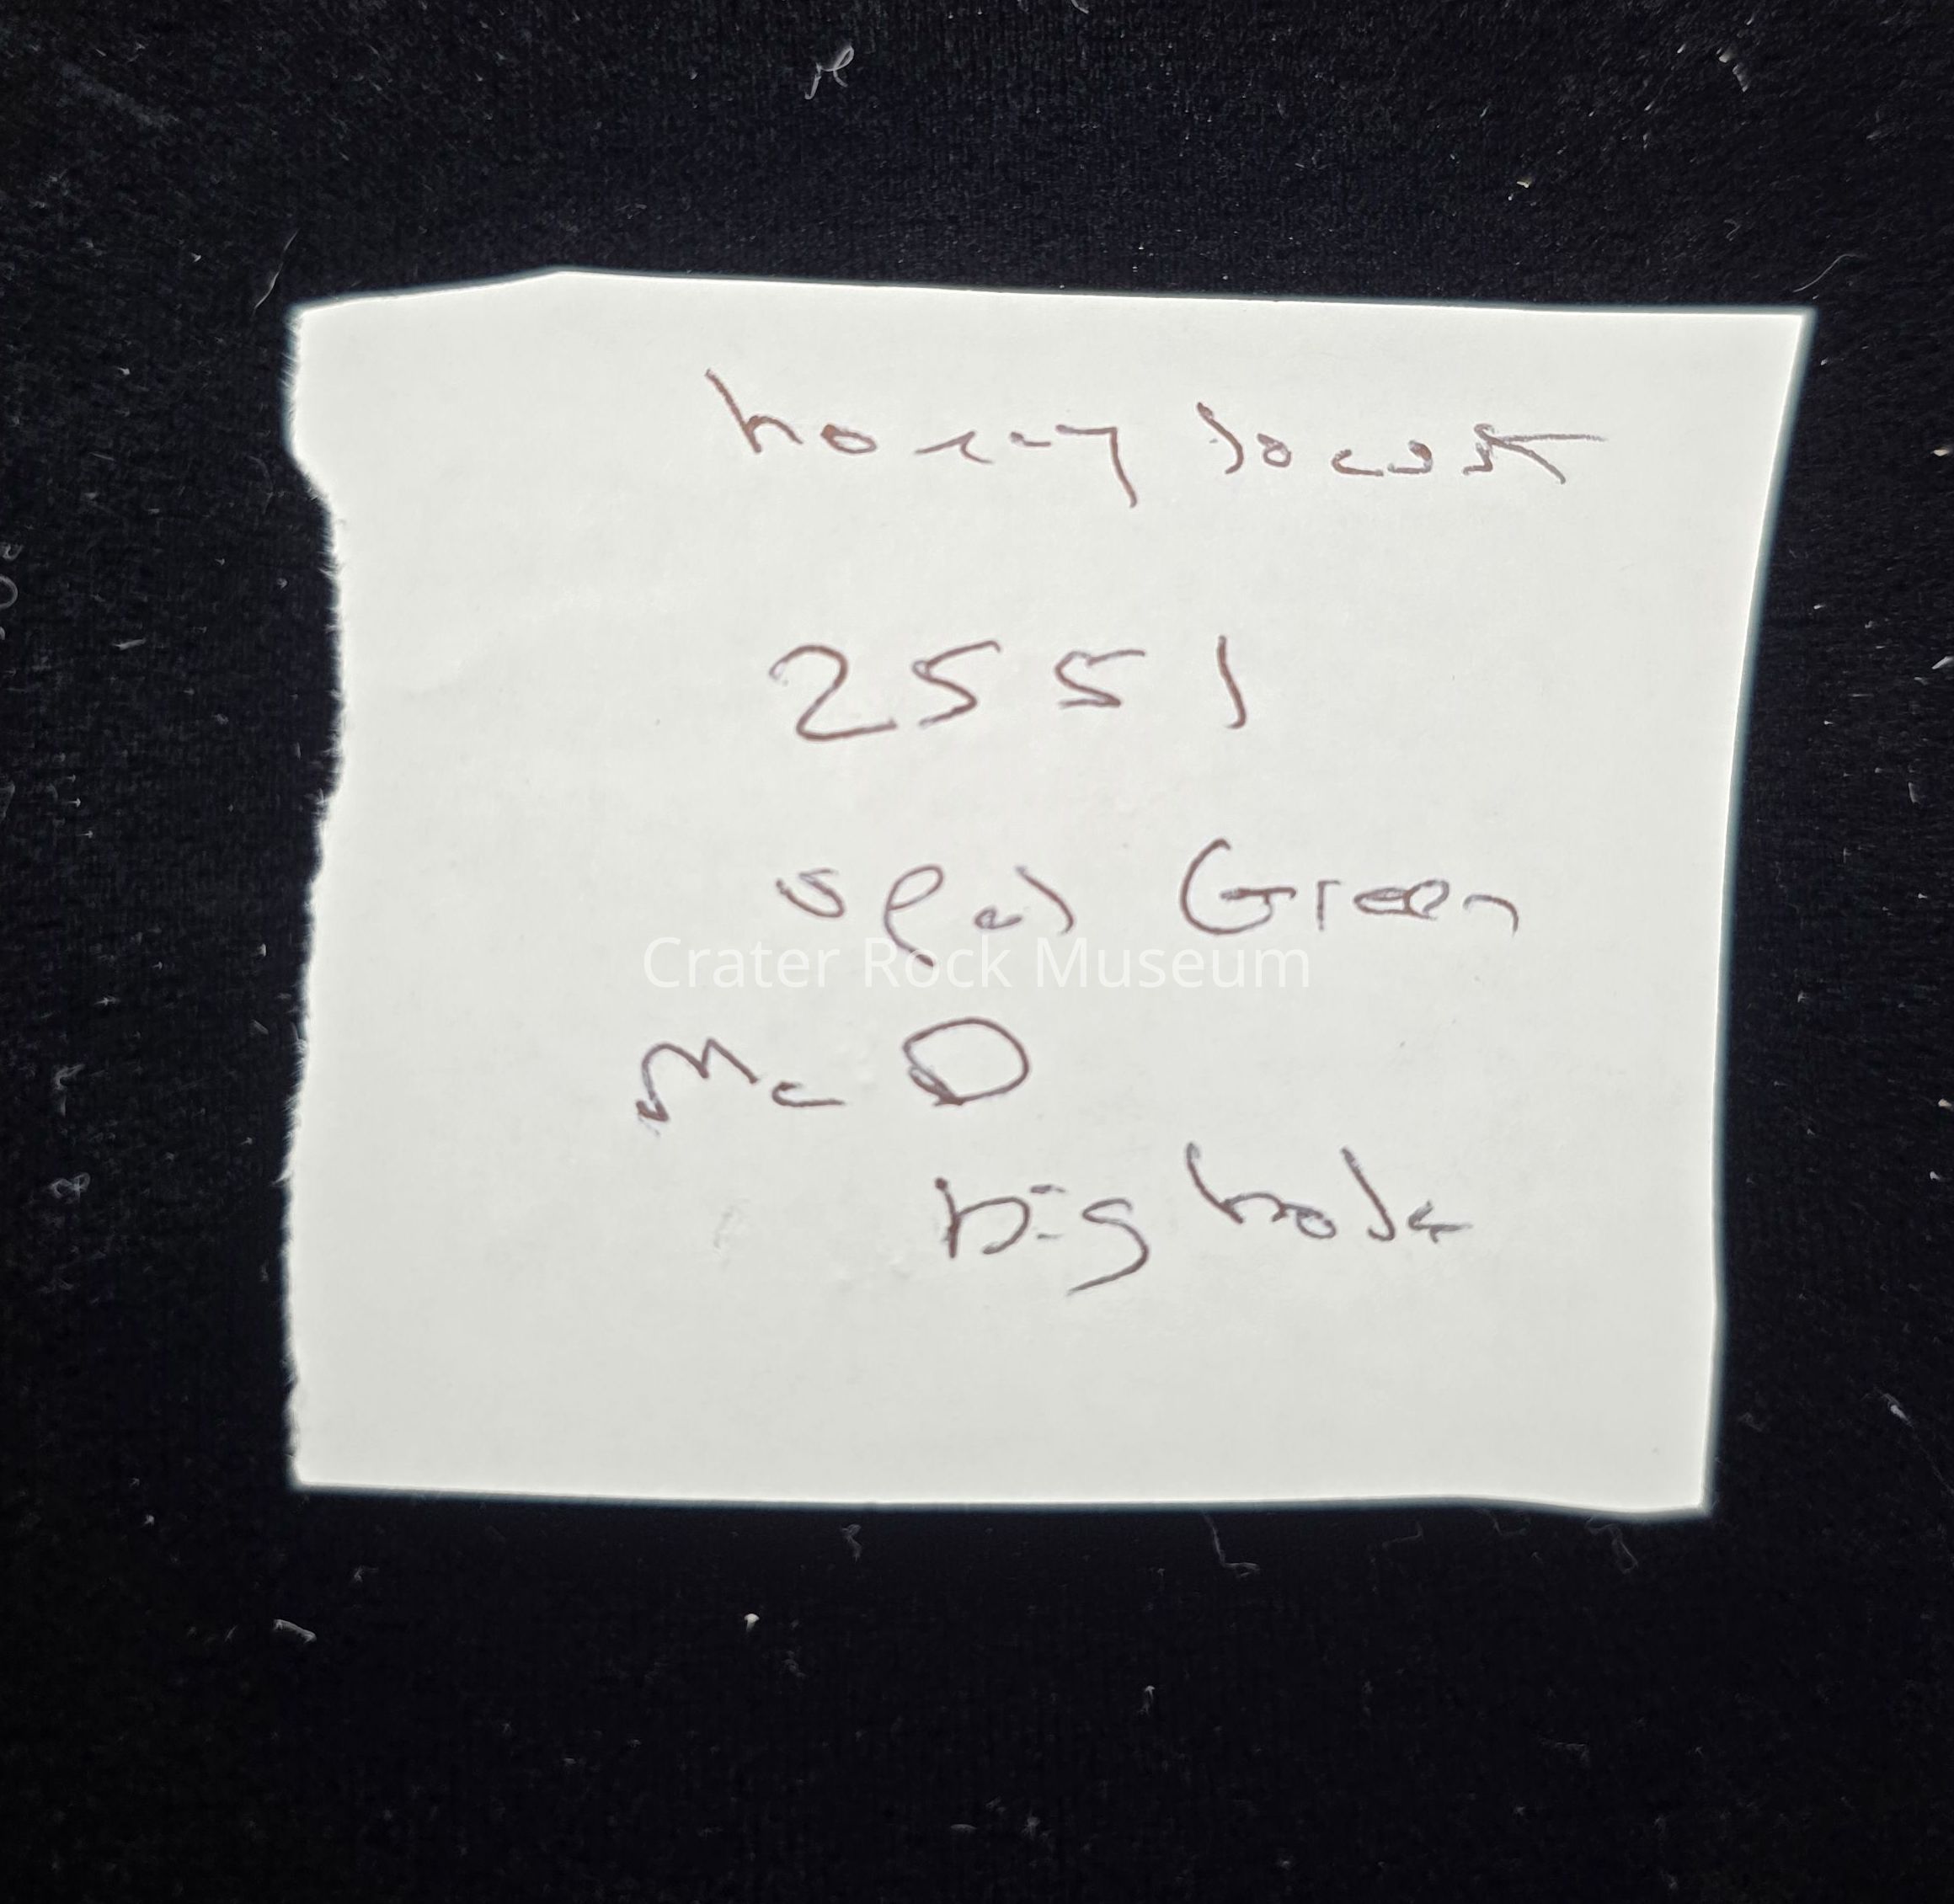 honey locust
2551
opal Green
Crater Rock Museum
McD
big hole